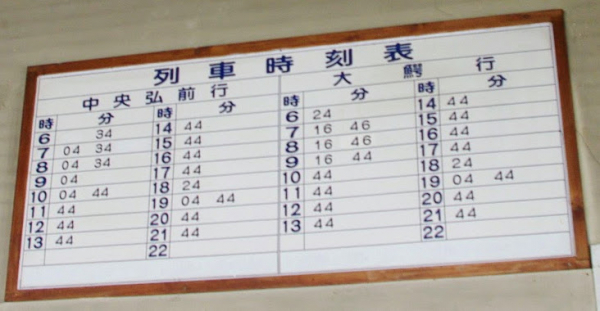 列車時刻表
中央弘前行
時 分
6 34
7 04 34
8 04 34
9 04
10 04 44
11 44
12 44
13 44
時 分
14 44
15 44
16 44
17 44
18 24
19 04 44
20 44
21 44
22
大鰐行
時 分
6 24
7 16 46
8 16 46
9 16 44
10 44
11 44
12 44
13 44
時 分
14 44
15 44
16 44
17 44
18 24
19 04 44
20 44
21 44
22